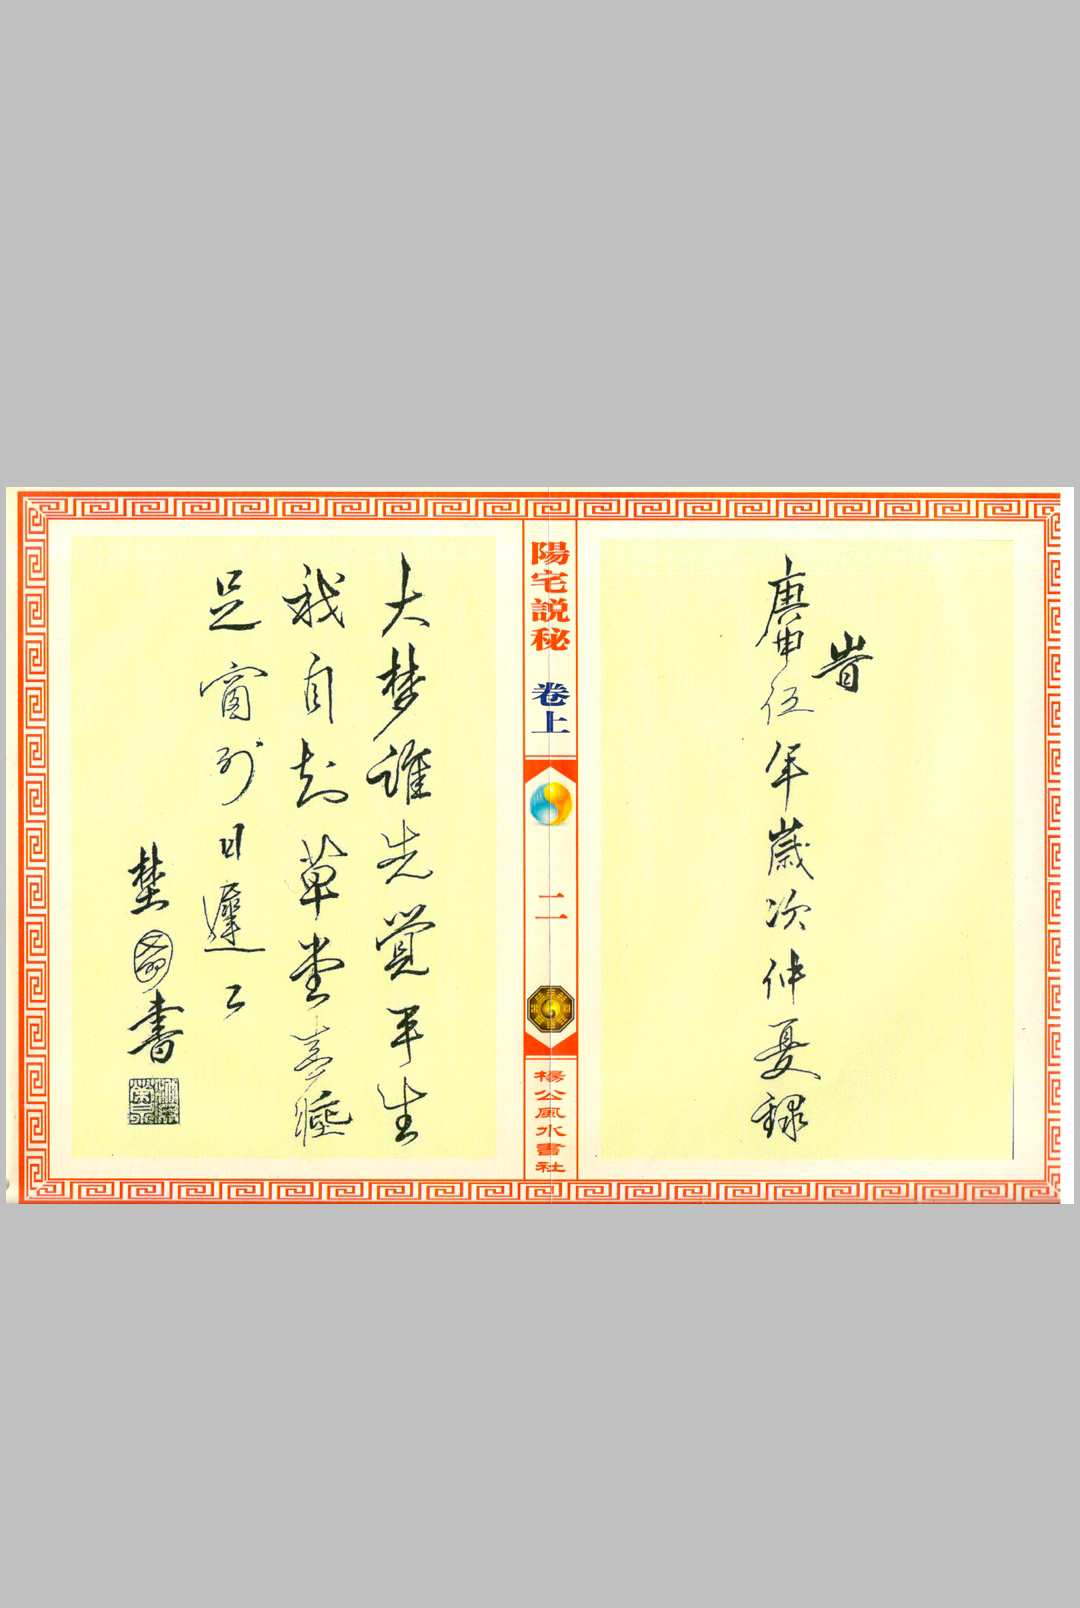 旹
庚申伍年歲次仲夏錄
陽宅説秘 卷上
二
楊公風水書社
大梦誰先覺平生
我自知草堂春睡
足窗外日遲々
埜 書